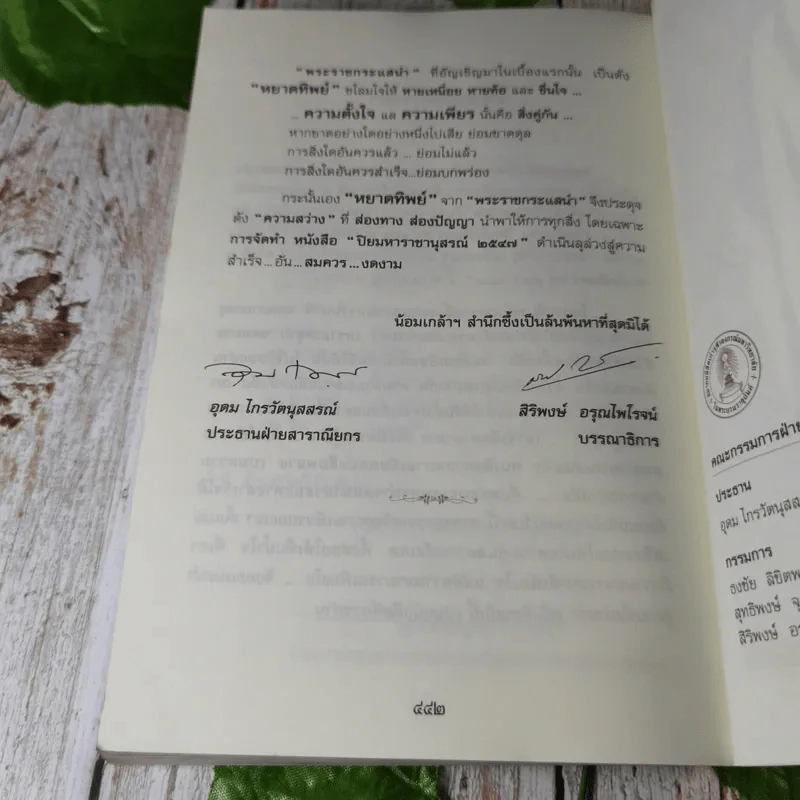 "พระราชกระแสนำ" ที่อัญเชิญมาในเบื้องแรกนั้น เป็นดัง
"หยาดทิพย์" ชโลมใจให้ หายเหนื่อย หายท้อ และ ชื่นใจ ...
... ความตั้งใจ แล ความเพียร นั้นคือ สิ่งคู่กัน ...
หากขาดอย่างใดอย่างหนึ่งไปเสีย ย่อมขาดดุล
การสิ่งใดอันควรแล้ว ... ย่อมไม่แล้ว
การสิ่งใดอันควรสำเร็จ...ย่อมบกพร่อง
กระนั้นเอง "หยาดทิพย์" จาก "พระราชกระแสนำ" จึงประดุจ
ดัง "ความสว่าง" ที่ ส่องทาง ส่องปัญญา นำพาให้การทุกสิ่ง โดยเฉพาะ
การจัดทำ หนังสือ "ปิยมหาราชานุสรณ์ ๒๕๔๗" ดำเนินลุล่วงสู่ความ
สำเร็จ...อัน...สมควร...งดงาม
น้อมเกล้าฯ สำนึกซึ้งเป็นล้นพ้นหาที่สุดมิได้
อุดม ไกรวัตนุสสรณ์
ประธานฝ่ายสาราณียกร
สิริพงษ์ อรุณไพโรจน์
บรรณาธิการ
๔๔๒
คณะกรรมการฝ่าย
ประธาน
อุดม ไกรวัตนุสส
กรรมการ
ธงชัย ลิขิตพ
สุทธิพงษ์ จุ
สิริพงษ์ อร